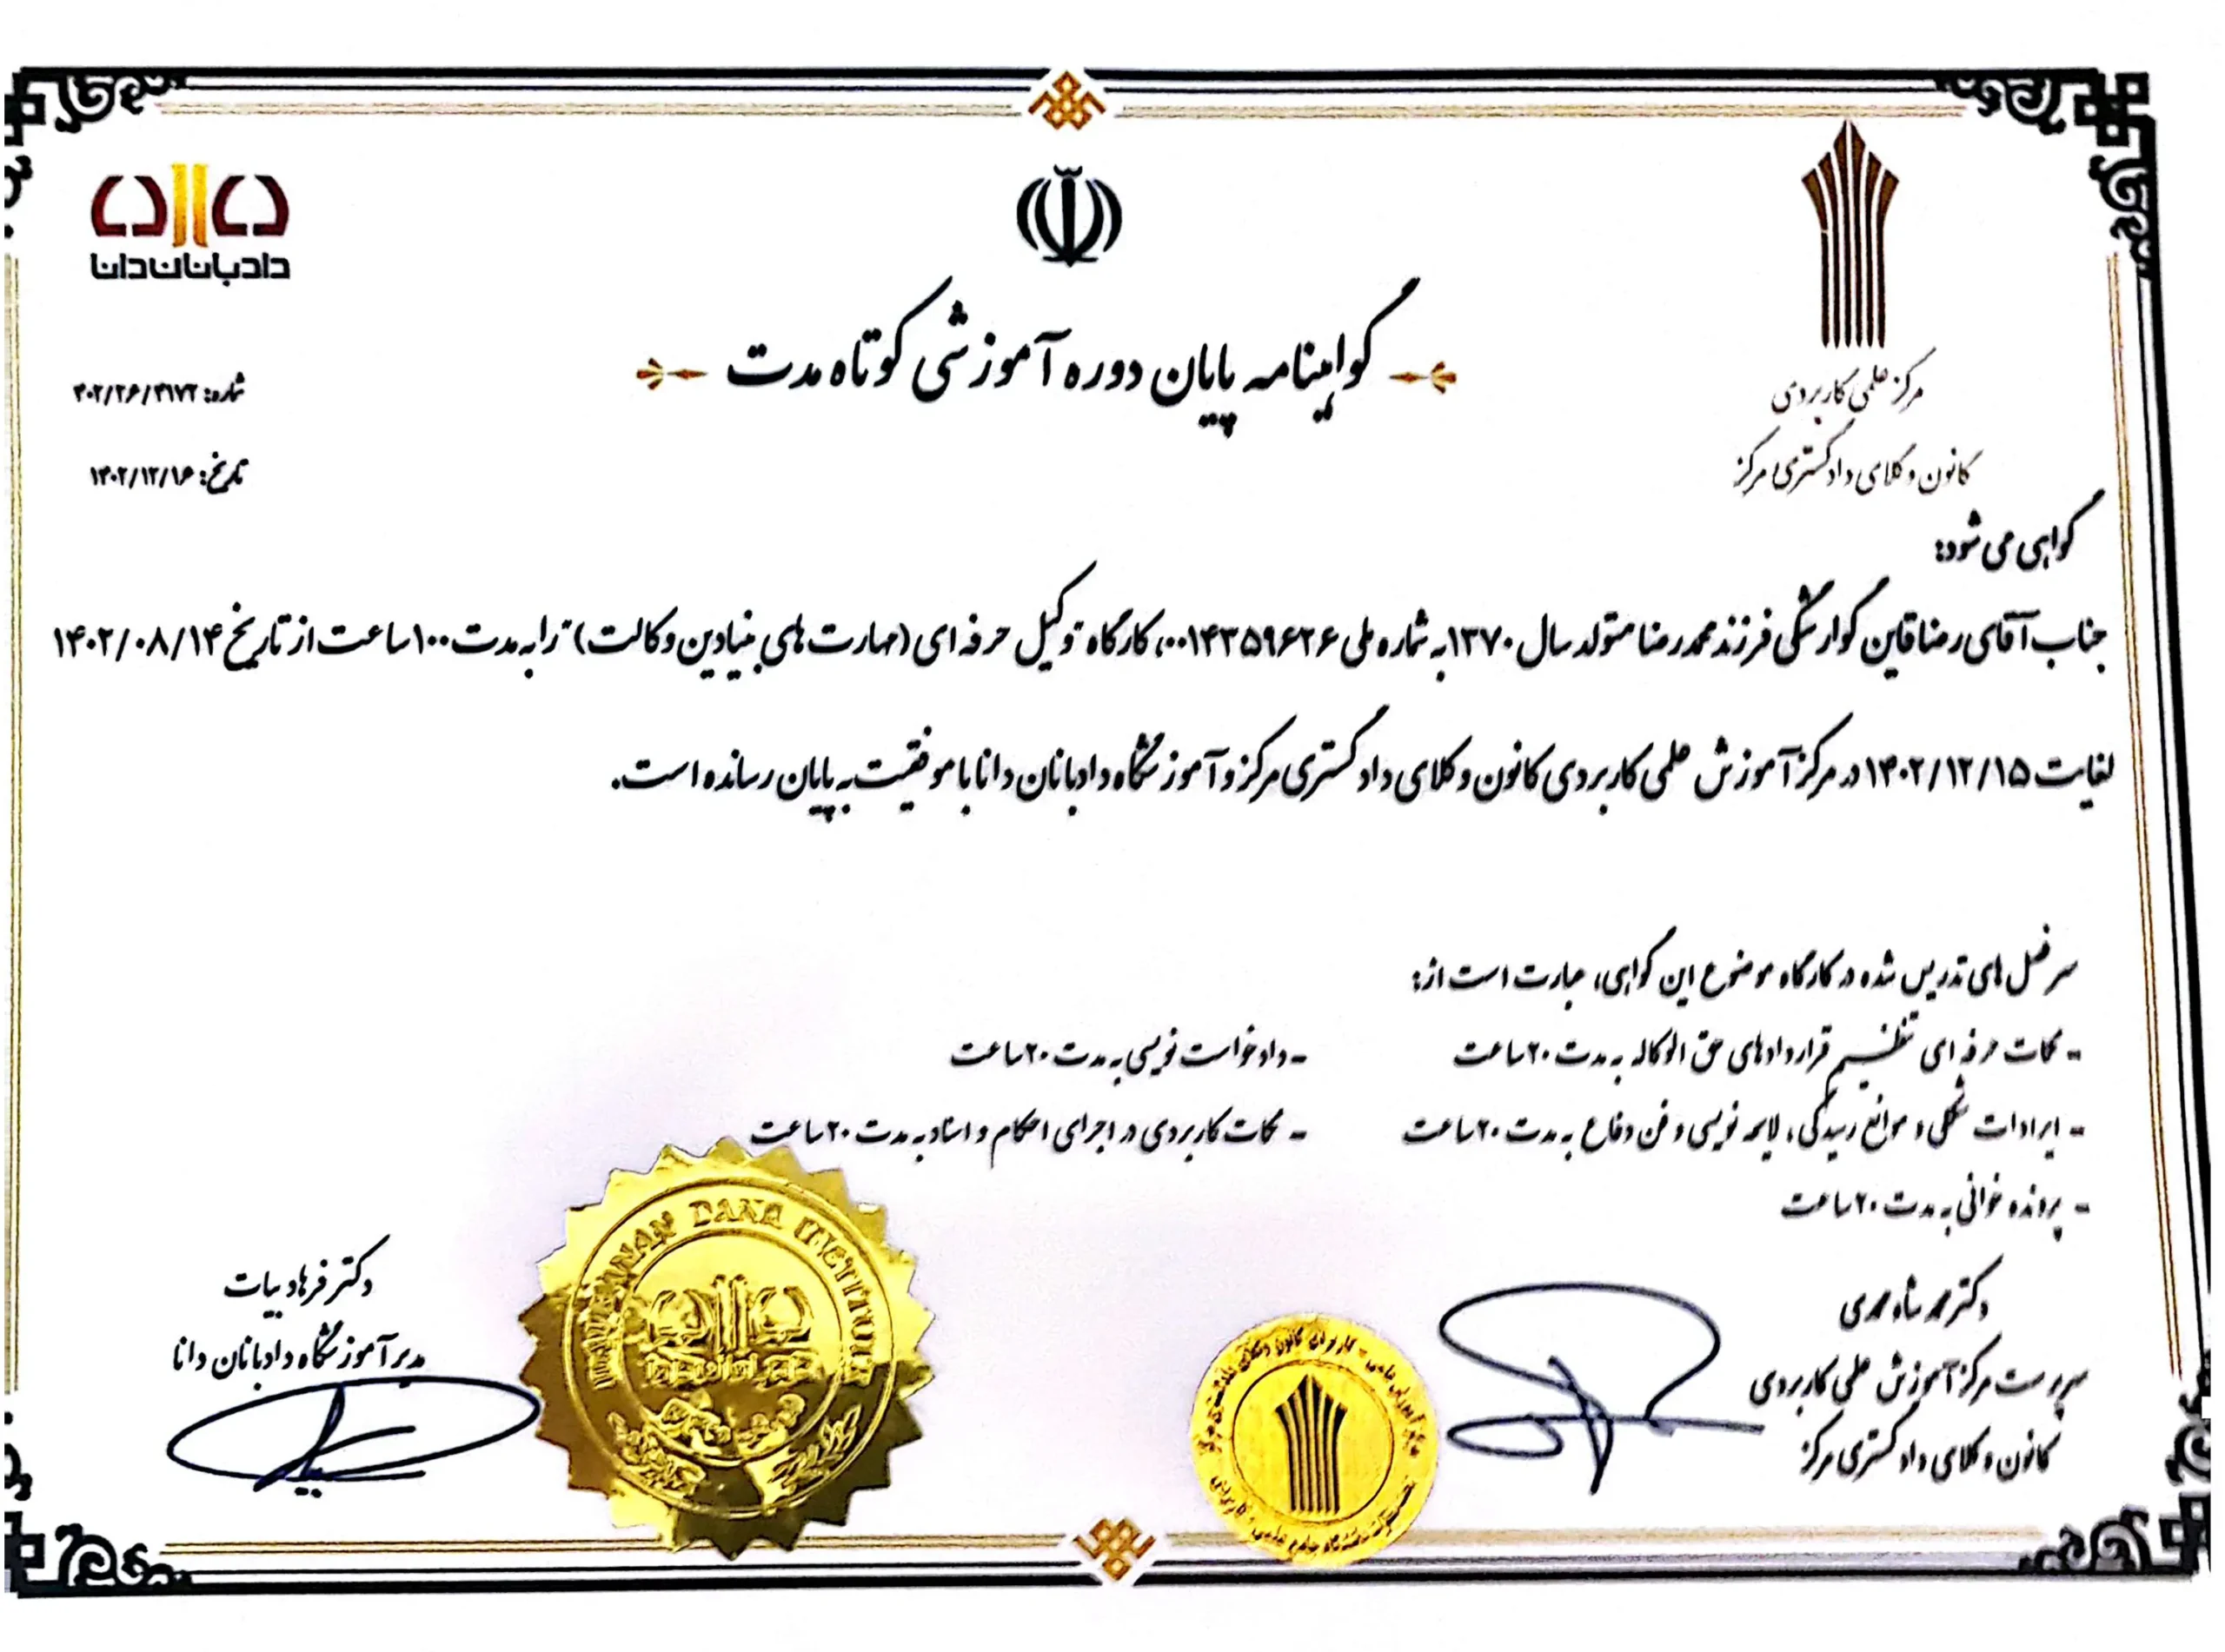 دادبانان دانا
گواهینامه پایان دوره آموزشی کوتاه مدت
مرکز علمی کاربردی
کانون وکلای دادگستری مرکز
شماره: ۴۰۲/۲۶/۳۱۷۲
تاریخ: ۱۴۰۲/۱۲/۱۶
گواهی می شود:
جناب آقای رضا قاین گوارشگی فرزند محمدرضا متولد سال ۱۳۷۰ به شماره ملی ۰۰۱۴۳۵۹۶۲۶، کارگاه "وکیل حرفه ای (مهارت های بنیادین وکالت)" را به مدت ۱۰۰ ساعت از تاریخ ۱۴۰۲/۰۸/۱۴
لغایت ۱۴۰۲/۱۲/۱۵ در مرکز آموزش علمی کاربردی کانون وکلای دادگستری مرکز و آموزشگاه دادبانان دانا با موفقیت به پایان رسانده است.
سرفصل های تدریس شده در کارگاه موضوع این گواهی، عبارت است از:
- نکات حرفه ای تنظیم قراردادهای حق الوکاله به مدت ۲۰ ساعت
- دادخواست نویسی به مدت ۲۰ ساعت
- ایرادات شکلی و موانع رسیدگی، لایحه نویسی و فن دفاع به مدت ۲۰ ساعت
- نکات کاربردی در اجرای احکام و اسناد به مدت ۲۰ ساعت
- پرونده خوانی به مدت ۲۰ ساعت
دکتر محمد شاه محمدی
سرپرست مرکز آموزش علمی کاربردی
کانون وکلای دادگستری مرکز
دکتر فرهاد بیات
مدیر آموزشگاه دادبانان دانا
DADBANAN DANA INSTITUTE
دادبانان دانا